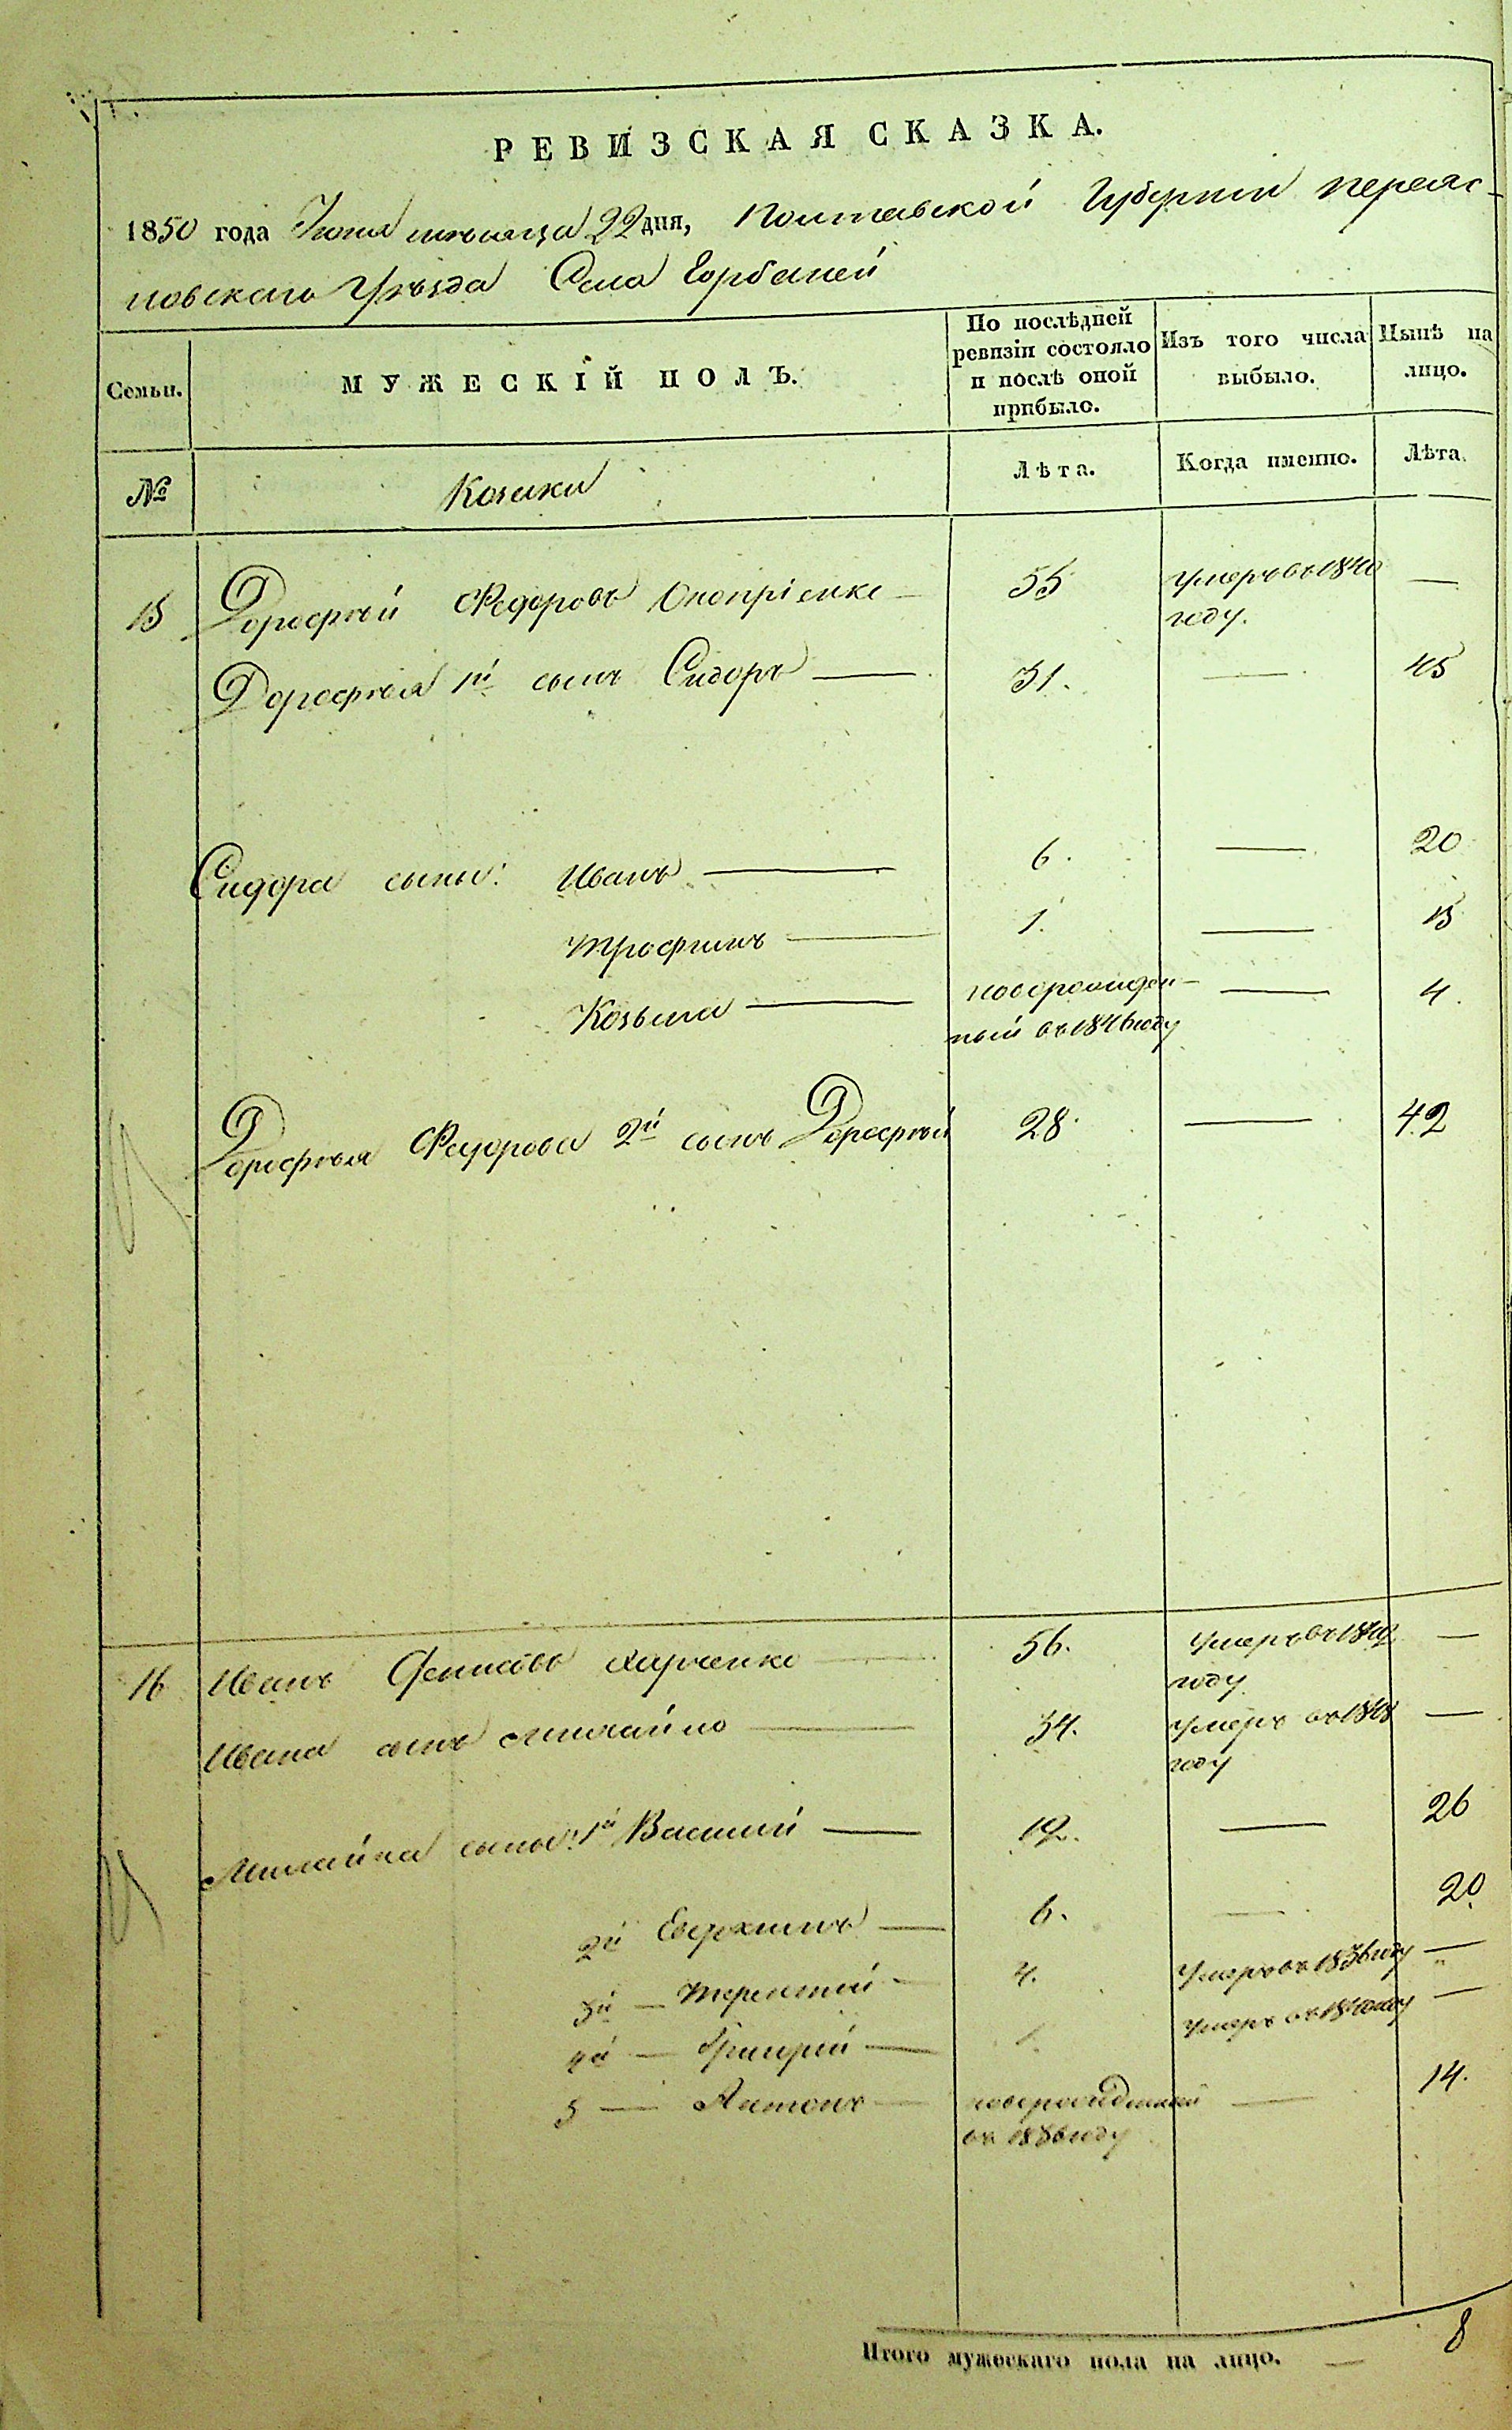 РЕВИЗСКАЯ СКАЗКА.
1850 года Июня мѣсяца 22 дня, Полтавской Губерніи Переяс-
ловскаго Уѣзда Села Горбаней
Семьи.
МУЖЕСКІЙ ПОЛЪ.
По послѣдней ревизіи состояло и послѣ оной прибыло.
Изъ того числа выбыло.
Нынѣ на лицо.
№ Козаки Лѣта. Когда именно. Лѣта.
15 Дорофѣй Федоровъ Оноприенко — 55 умеръ въ 1840 —
году.
Дорофѣя 1й сынъ Сидоръ — 31. — 45
Сидора сыны: Иванъ — 6. — 20
Трофимъ — 1. — 15
Козьма — новорожден- — 4.
ный въ 1846 году
Дорофѣя Федорова 2й сынъ Дорофѣй 28. — 42
16 Иванъ Денисовъ Харченко — 56. умеръ въ —
году
Ивана сынъ Михайло — 34. умеръ въ 1848 —
году
Михайла сыны: 1й Василий — 12. — 26
2й Евдокимъ — 6. — 20.
3й — Терентий — 4. умеръ въ 1836 году —
4й — Григорий — 1. умеръ въ 1840 году —
5 — Антонъ — новорожденный — 14.
въ 1836 году
Итого мужескаго пола на лицо. — 8